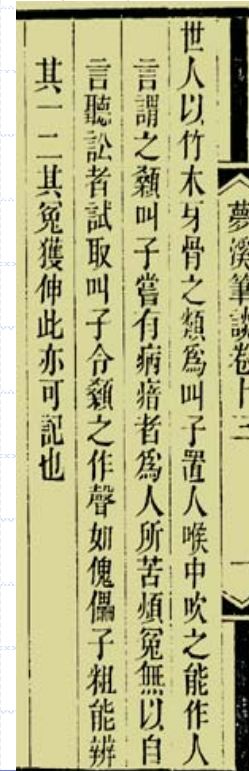 夢溪筆談卷十三 一
世人以竹木牙骨之類爲叫子置人喉中吹之能作人
言謂之顙叫子嘗有病瘖者爲人所苦煩冤無以自
言聽訟者試取叫子令顙之作聲如傀儡子粗能辨
其一二其冤獲伸此亦可記也